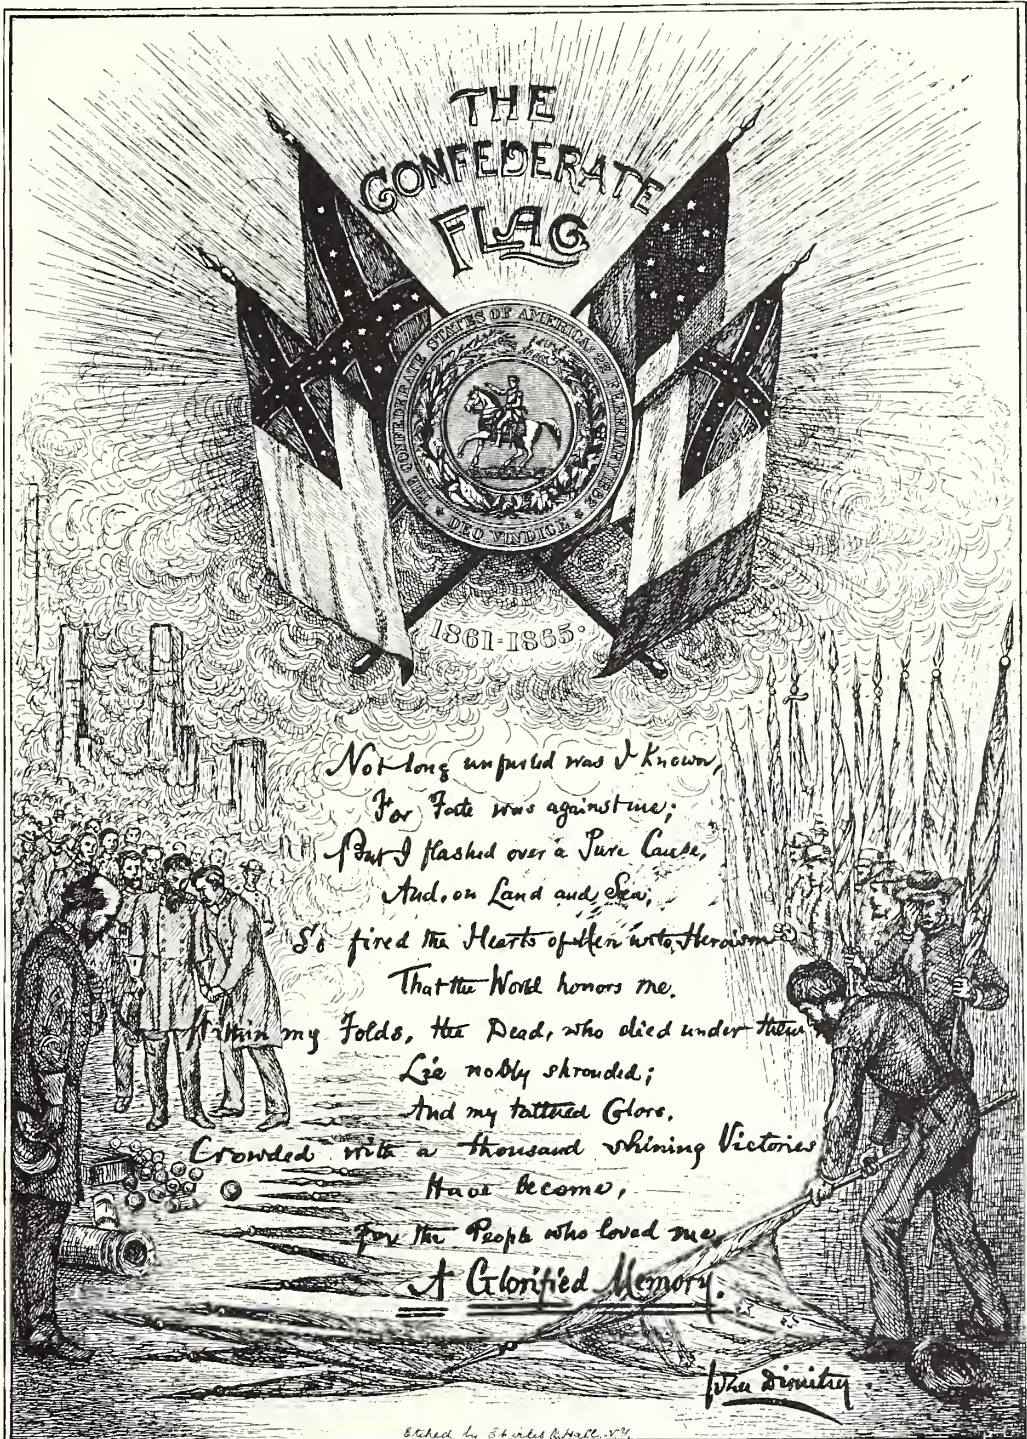 THE
CONFEDERATE
FLAG
THE CONFEDERATE STATES OF AMERICA 22 FEBRUARY 1862
DEO VINDICE
1861-1865.
Not long unfurled was I Known,
For Fate was against me;
But I flashed over a Pure Cause,
And, on Land and Sea,
So fired the Hearts of Men unto Heroism
That the World honors me.
Within my Folds, the Dead, who died under them
Lie nobly shrouded;
And my tattered Colors,
Crowded with a thousand shining Victories
Have become,
For the People who loved me
A Glorified Memory.
John Dimitry.
Etched by Charles K. Hall. N.Y.